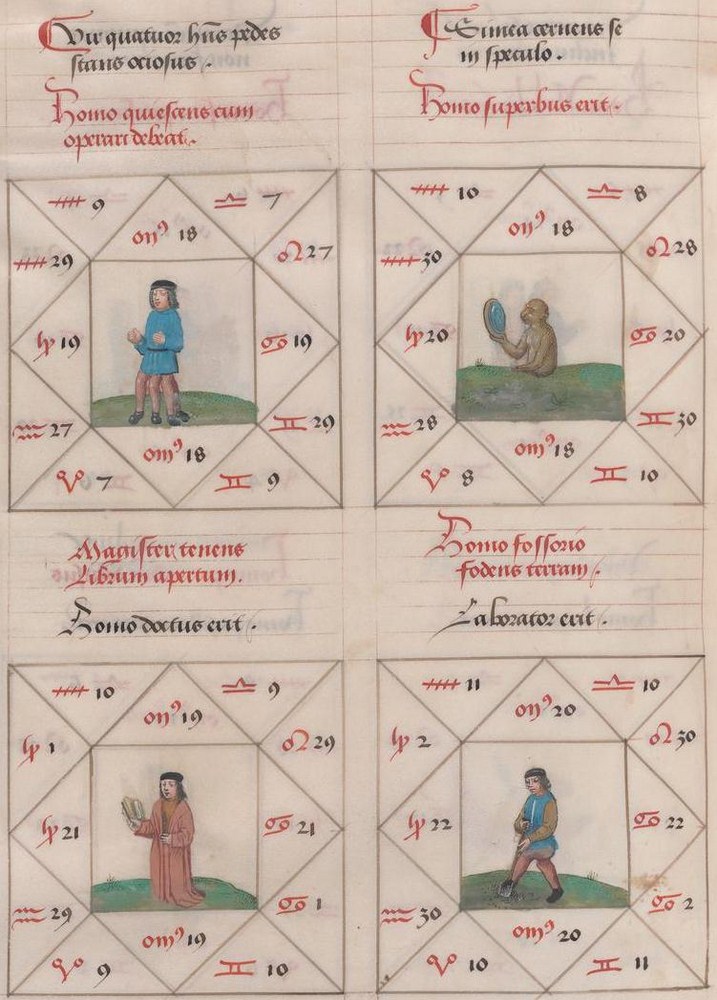 Vir quatuor hñs pedes
stans ociosus .
Homo quiescens cum
operari debeat .
♐ 9
♎ 7
♏ 18
♐ 29
♌ 27
♑ 19
♋ 19
♒ 27
♊ 29
♉ 18
♈ 7
♊ 9
Simea cernens se
in speculo .
Homo superbus erit .
♐ 10
♎ 8
♏ 18
♐ 30
♌ 28
♑ 20
♋ 20
♒ 28
♊ 30
♉ 18
♈ 8
♊ 10
Magister tenens
Librum apertum .
Homo doctus erit .
♐ 10
♎ 9
♏ 19
♑ 1
♌ 29
♑ 21
♋ 21
♒ 29
♋ 1
♉ 19
♈ 9
♊ 10
Homo fossorio
fodens terram .
Laborator erit .
♐ 11
♎ 10
♏ 20
♑ 2
♌ 30
♑ 22
♋ 22
♒ 30
♋ 2
♉ 20
♈ 10
♊ 11